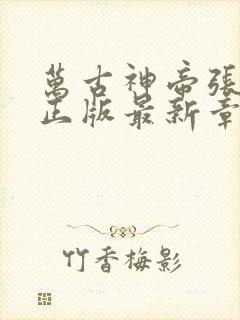 萬古神帝張
正版最新章
竹香梅影